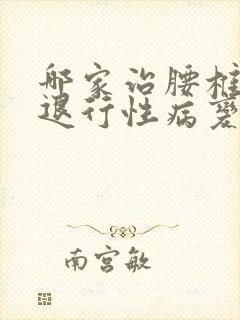 哪家治腰椎
退行性病变
南宫敏